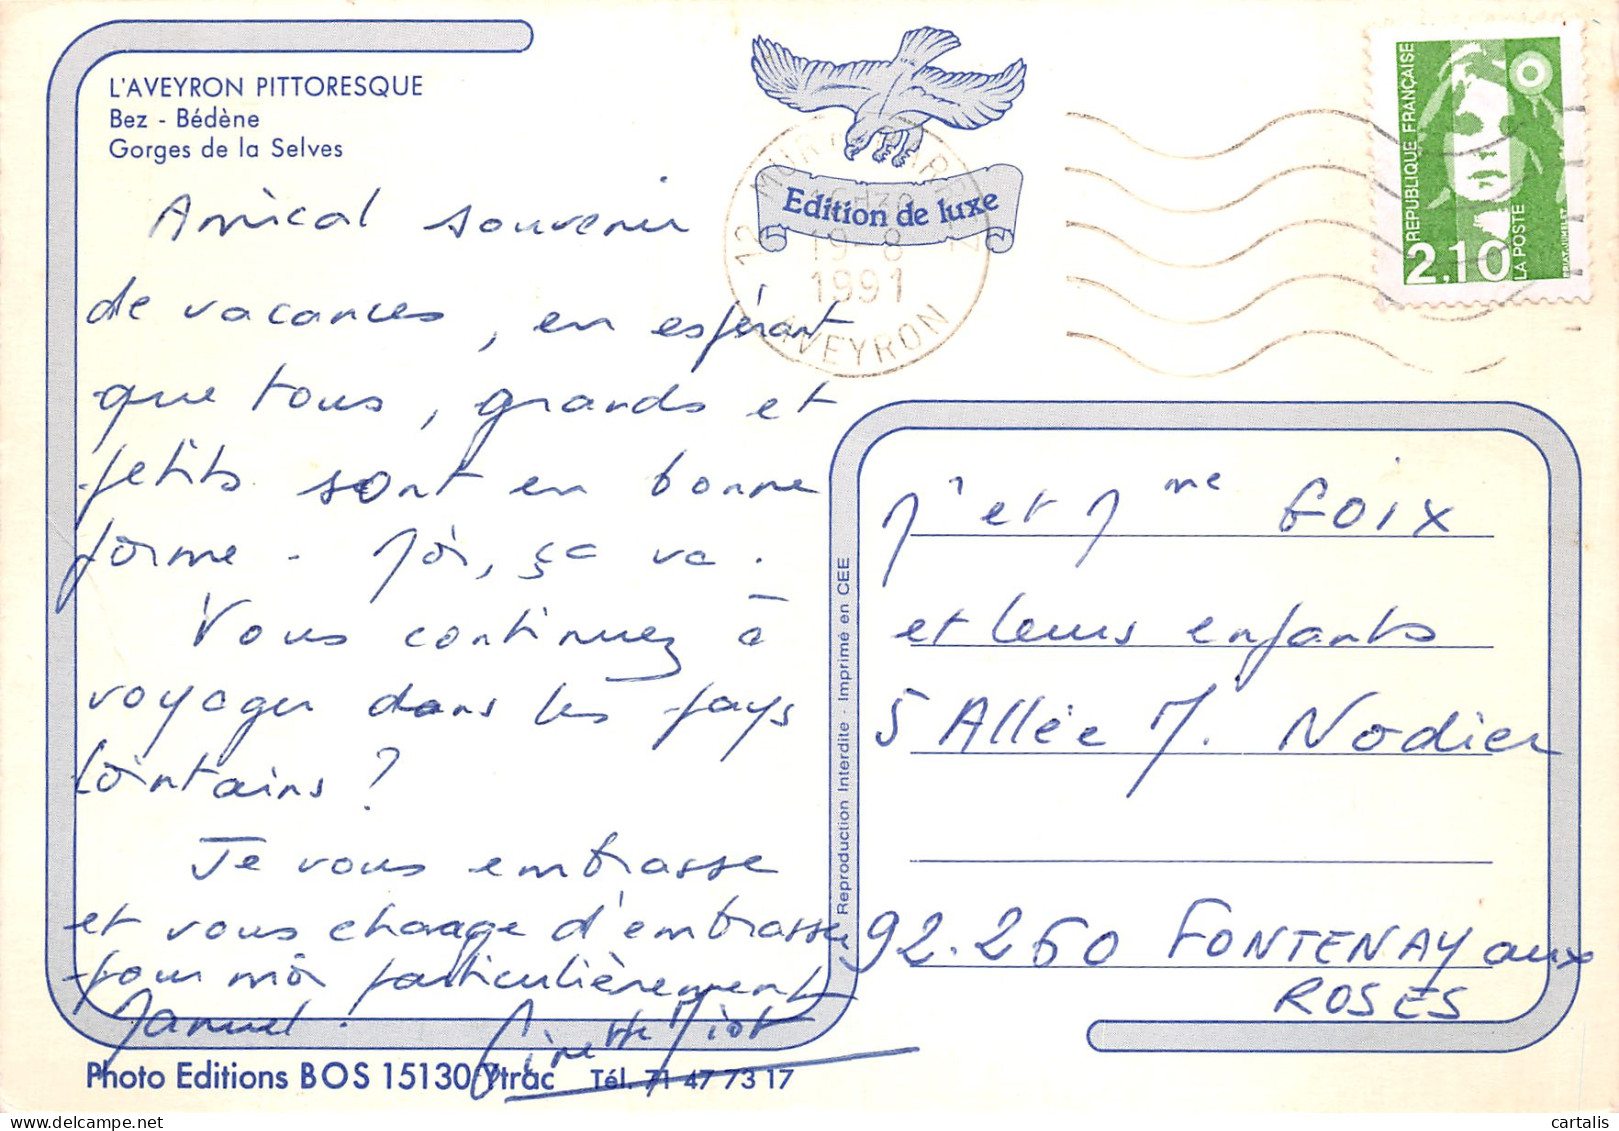 L'AVEYRON PITTORESQUE
Bez - Bédène
Gorges de la Selves
Amical souvenir
de vacances, en espérant
que tous, grands et
petits sont en bonne
forme - Moi, ça va.
Vous continuez à
voyager dans les pays
lointains ?
Je vous embrasse
et vous charge d'embrasser
pour moi particulièrement
Manuel.
Ginette
Photo Editions BOS 15130 Ytrac Tél. 71 47 73 17
Edition de luxe
12
19-8
1991
AVEYRON
REPUBLIQUE FRANÇAISE
2,10
LA POSTE
Reproduction Interdite - Imprimé en CEE
Mr et Mme Goix
et leurs enfants
5 Allée M. Nodier
92.260 FONTENAY aux
ROSES
cartalis